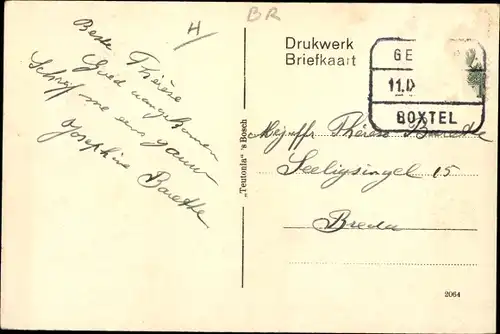 H
BR
Beste Thérèse
Goed aangekomen
Schrijf me eens gauw
Josephine Barette
"Teutonia" 's Bosch
Drukwerk
Briefkaart
GE
11.IX
BOXTEL
Mejuffr. Thérèse Barette
Seeligsingel 15
Breda
2064